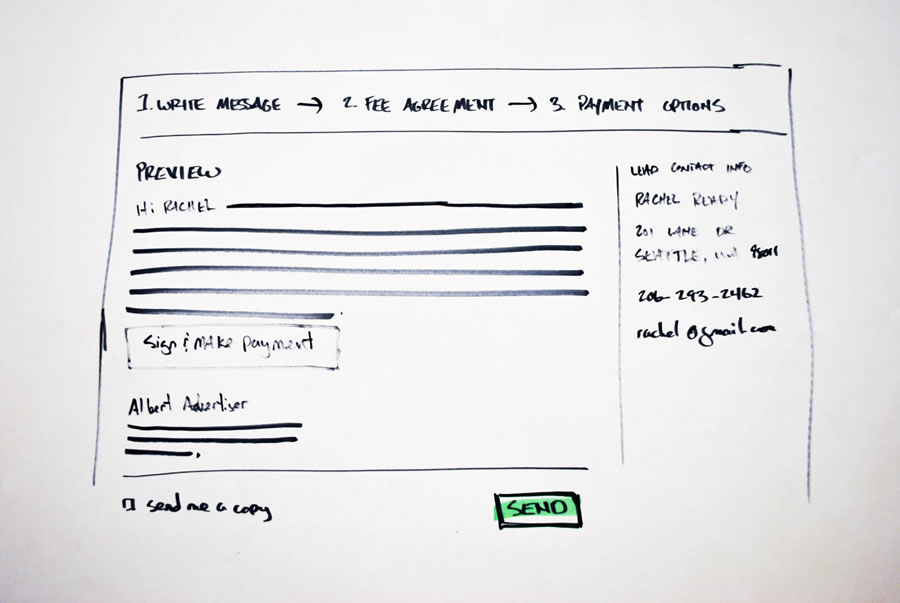 1. WRITE MESSAGE → 2. FEE AGREEMENT → 3. PAYMENT OPTIONS
PREVIEW
Hi RACHEL
Sign & MAKE Payment
Albert Advertiser
send me a copy
SEND
LEAD CONTACT INFO
RACHEL READY
201 LANE DR
SEATTLE,
206-293-2462
rachel@gmail.com